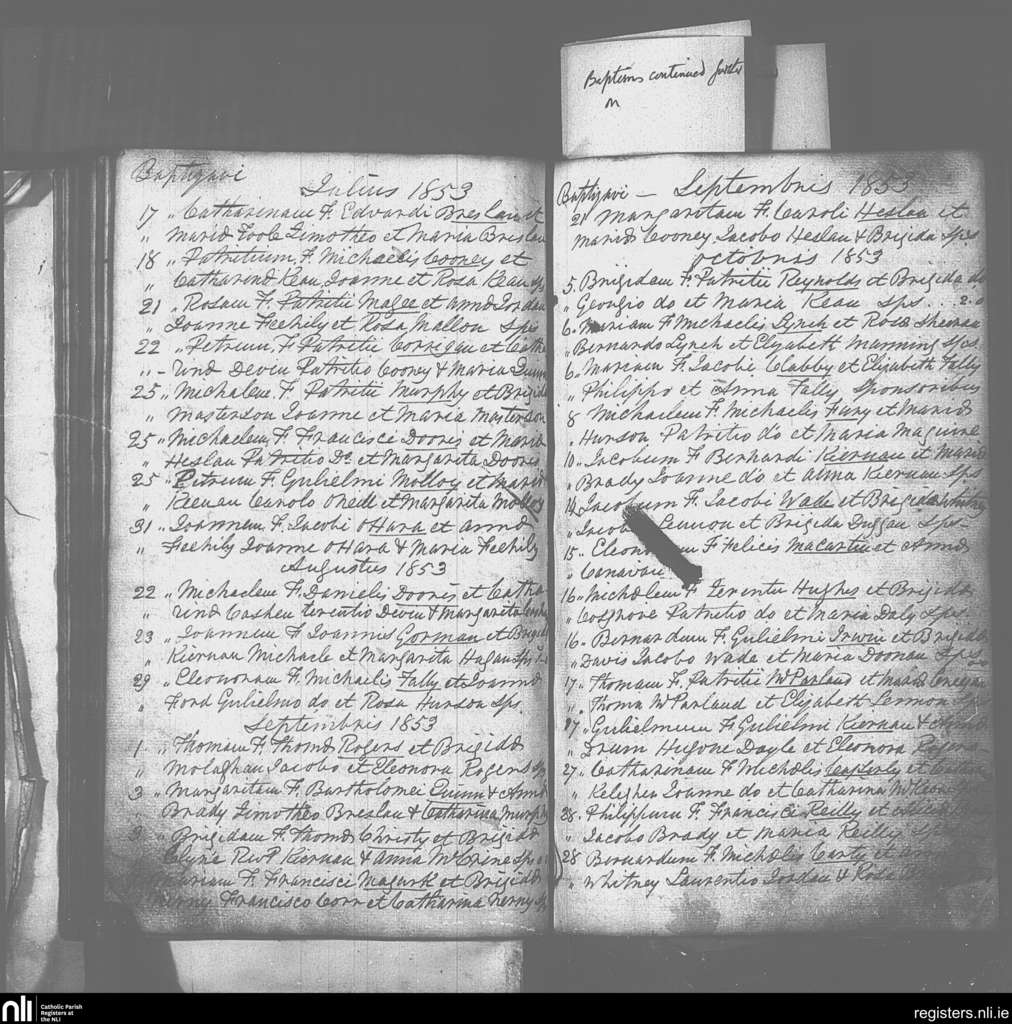 Baptisms continued further
on
Baptizavi
Julius 1853
17 " Catharinam F. Edvardi Breslan et
" Mariæ Toole Timotheo et Maria Breslan
18 " Patritium F. Michaelis Cooney et
" Catharinæ Keau Joanne et Rosa Keau sps
21 " Rosam F. Patritii Magee et Annæ Jordan
" Joanne Feehily et Rosa Mallon Sps
22 " Petrum F. Patritii Corrigan et Catha
" - rinæ Devin Patritio Cooney & Maria Quinn
25 " Michalem F. Patritii Murphy et Brigidæ
" Masterson Joanne et Maria Masterson
25 " Michaelem F. Francisci Dooris et Mariæ
" Heslan Patritio Do. et Margarita Dooris
25 " Petrum F. Gulielmi Molloy et Mariæ
" Keenan Carolo ONeill et Margarita Molloy
31 " Joannem F. Jacobi OHara et Annæ
" Feehily Joanne OHara & Maria Feehily
Augustus 1853
22 " Michaelem F. Danielis Dooris et Catha
" rinæ Cashen Terentio Devin & Margarita
23 " Joannem F Joannis Gorman et Brigidæ
" Kiernan Michaele et Margarita Hagan Sps
29 " Eleonoram F. Michaelis Fally et Joannæ
" Ford Gulielmo do et Rosa Hurson Sps.
Septembris 1853
1 " Thomam F. Thomæ Rogers et Brigidæ
" Molaghan Jacobo et Eleonora Rogers Sp
3 " Margaritam F. Bartholomei Quinn & Annæ
" Brady Timotheo Breslan & Catharina Murphy
" Brigidam F. Thomæ Christy et Brigidæ
Clyne Revd P. Kiernan & Anna McCrine Sps
Mariam F. Francisci Magurk et Brigidæ
Francisco Corr et Catharina
Baptizavi - Septembris 1853
21 Margaritam F. Caroli Heslan et
Mariæ Cooney Jacobo Heslan & Brigida Sps
Octobris 1853
5. Brigidam F. Patritii Reynolds et Brigidæ do
" Georgio do et Maria Keau Sps. .. 2.0
6. Mariam F Michaelis Lynch et Rosæ Sheeran
" Bernardo Lynch et Elizabeth Manning Sps.
6. Mariam F. Jacobi Clabby et Elizabeth Fally
" Philippo et Anna Fally Sponsoribus
8 Michaelem F. Michaelis Fury et Mariæ
" Hurson Patritio do et Maria Maguire
10. Jacobum F Bernardi Kiernan et Mariæ
" Brady Joanne do et Anna Kiernan Sps
14 Jacobum F. Jacobi Wade et Brigidæ Whitney
" Lennon et Brigida Duggan Sps
15. F Felicis Macartin et Annæ
" Canavan
16 " Michælem F. Terentii Hughes et Brigidæ
" Cosgrove Patritio do et Maria Daly Sps.
16. Bernardum F. Gulielmi Irwin et Brigidæ
" Davis Jacobo Wade et Maria Doonan Sps
17 " Thomam F. Patritii McParland et Mariæ
" Thoma McParland et Elizabeth Lennon Sps
27 " Gulielmum F. Gulielmi Kiernan &
" Drum Hugone Doyle et Eleonora Rogers -
27 " Catharinam F Michælis Casserly et
" Keleghan Joanne do et Catharina McKeon
28. Philippum F. Francisci Reilly et
" Jacobo Brady et Maria Reilly Sps
28 Bernardum F. Michælis Carty et
" Whitney Laurentio Jordan & Rosa
nli
Catholic Parish
Registers at
the NLI
registers.nli.ie